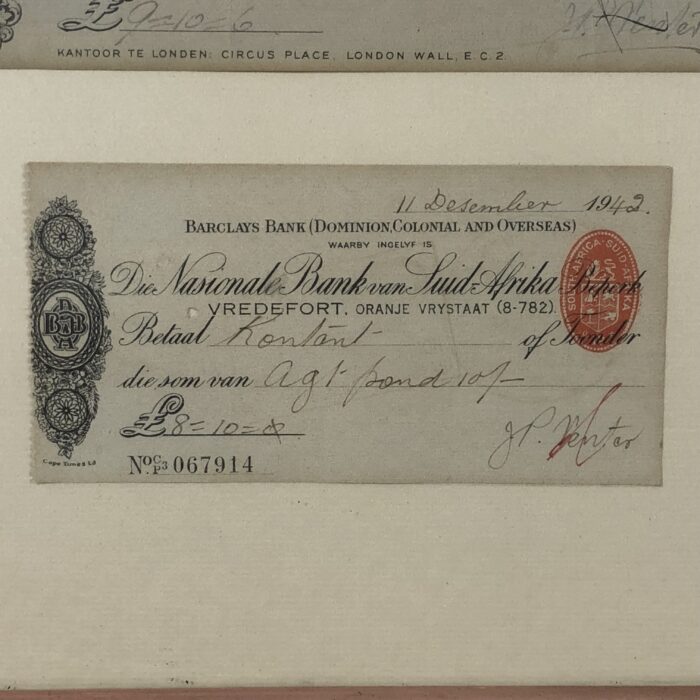 £ 9=10=6
KANTOOR TE LONDEN: CIRCUS PLACE, LONDON WALL, E.C.2.
11 Desember 1942.
BARCLAYS BANK (DOMINION, COLONIAL AND OVERSEAS)
WAARBY INGELYF IS
Die Nasionale Bank van Suid-Afrika Beperk
VREDEFORT, ORANJE VRYSTAAT (8-782).
SOUTH AFRICA · SUID-AFRIKA
Betaal Kontant of Toonder
die som van Agt pond 10/-
£ 8=10=0
J.P. Venter
No. C/P3 067914
Cape Times Ltd